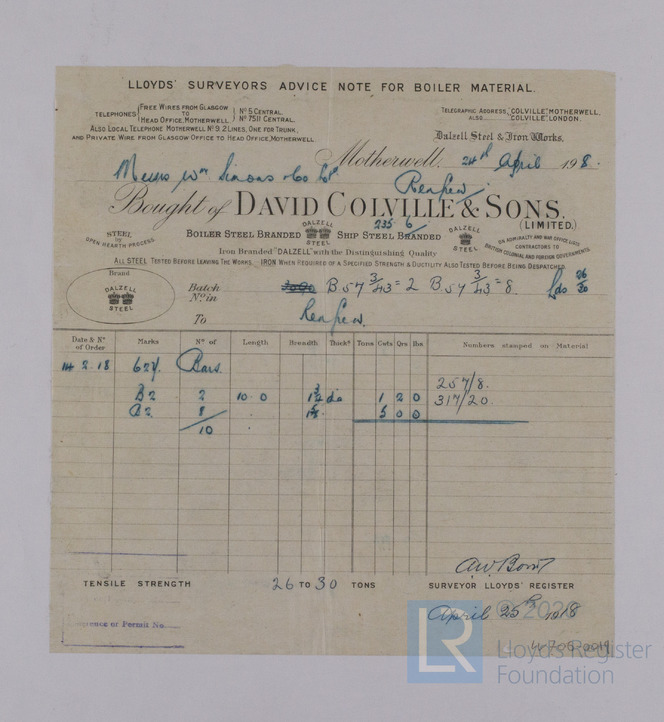 LLOYDS' SURVEYORS ADVICE NOTE FOR BOILER MATERIAL.
TELEPHONES { FREE WIRES FROM GLASGOW TO HEAD OFFICE, MOTHERWELL. } No 5 CENTRAL. No 7511 CENTRAL.
ALSO LOCAL TELEPHONE MOTHERWELL No 9. 2 LINES, ONE FOR TRUNK,
AND PRIVATE WIRE FROM GLASGOW OFFICE TO HEAD OFFICE, MOTHERWELL
TELEGRAPHIC ADDRESS, "COLVILLE", MOTHERWELL.
ALSO "COLVILLE", LONDON.
Dalzell Steel & Iron Works.
Motherwell, 24th April 1918.
Messrs Wm Simons & Co Ld
Renfrew.
Bought of DAVID COLVILLE & SONS.
(LIMITED.)
235.6
STEEL BY OPEN HEARTH PROCESS.
BOILER STEEL BRANDED DALZELL STEEL SHIP STEEL BRANDED DALZELL STEEL
ON ADMIRALTY AND WAR OFFICE LISTS CONTRACTORS TO BRITISH COLONIAL AND FOREIGN GOVERNMENTS.
Iron Branded "DALZELL" with the Distinguishing Quality
ALL STEEL TESTED BEFORE LEAVING THE WORKS. IRON WHEN REQUIRED OF A SPECIFIED STRENGTH & DUCTILITY ALSO TESTED BEFORE BEING DESPATCHED.
Brand
DALZELL STEEL
Batch No in B 57 3/43 = 2 B 57 3/43 = 8 Lds 26/30
To Renfrew.
Date & No of Order Marks No of Length Breadth Thickss Tons Cwts Qrs lbs Numbers stamped on Material
14 2.18 624. Bars.
257/8.
B2 2 10 0 dia 1 2 0 317/20.
B2 8 5 0 0
10
TENSILE STRENGTH 26 TO 30 TONS
SURVEYOR LLOYDS' REGISTER
April 25th 1918
ence or Permit No.
© 2020
LR Lloyd's Register
Foundation